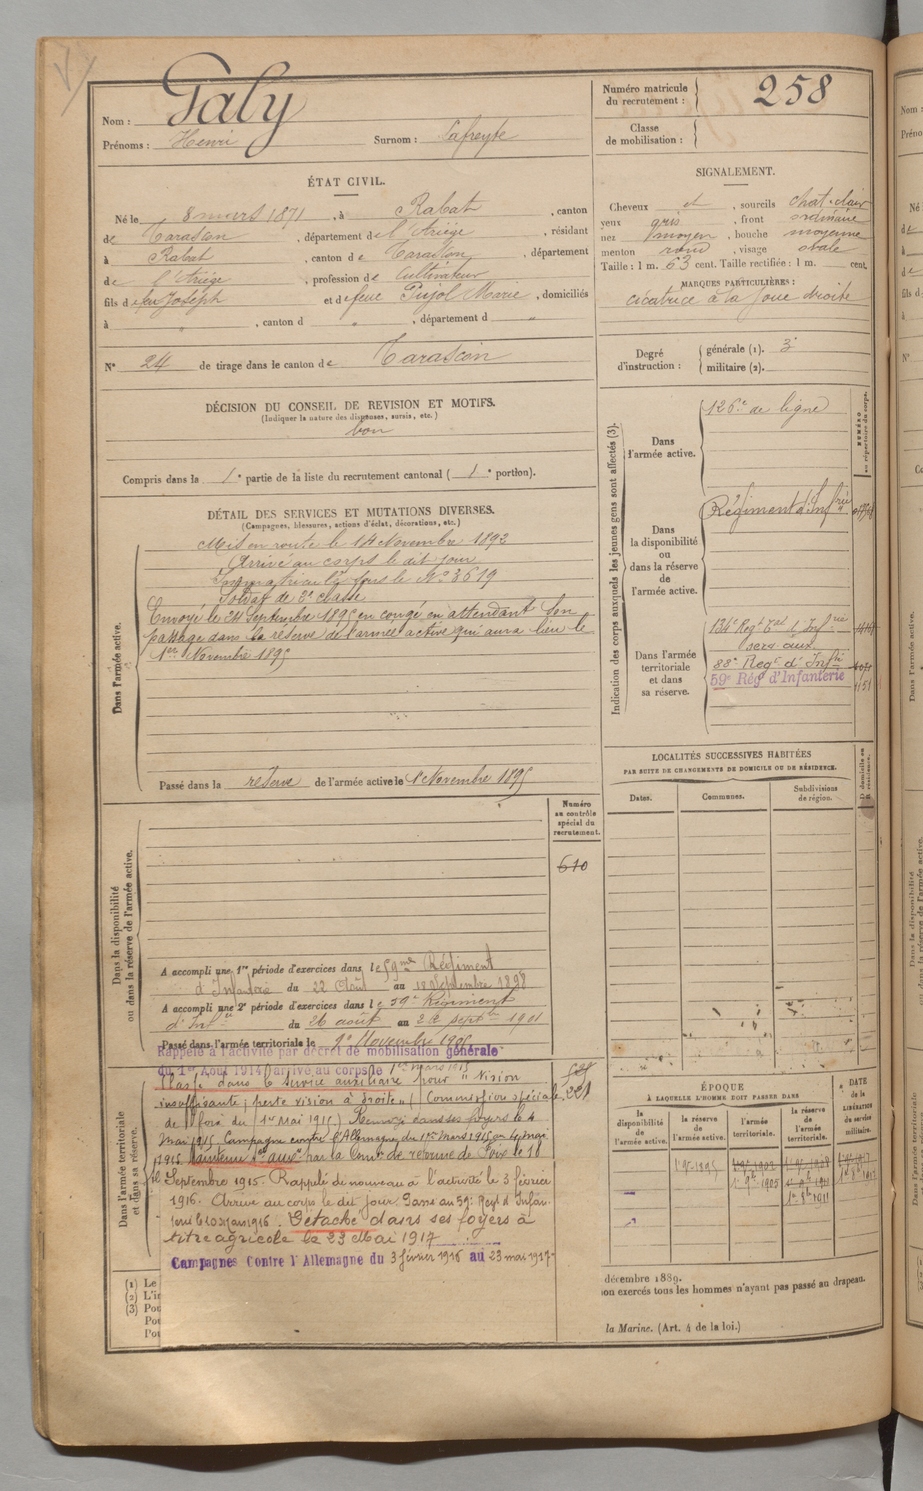 Nom : Galy
Prénoms : Henri Surnom : Lafreyte
Numéro matricule du recrutement : 258
Classe de mobilisation :
ÉTAT CIVIL.
Né le 8 mars 1871, à Rabat, canton
de Tarascon, département de l'Ariège, résidant
à Rabat, canton de Tarascon, département
de l'Ariège, profession de Cultivateur
fils de feu Joseph et de feue Pujol Marie, domiciliés
à " , canton d " , département d "
N° 24 de tirage dans le canton de Tarascon
SIGNALEMENT.
Cheveux et , sourcils chat. clair
yeux gris , front ordinaire
nez moyen , bouche moyenne
menton rond , visage ovale
Taille : 1 m. 63 cent. Taille rectifiée : 1 m. cent.
MARQUES PARTICULIÈRES :
cicatrice à la joue droite
Degré d'instruction : générale (1). 3
militaire (2).
DÉCISION DU CONSEIL DE REVISION ET MOTIFS.
(Indiquer la nature des dispenses, sursis, etc.)
bon
Compris dans la 1e partie de la liste du recrutement cantonal ( 1e portion).
DÉTAIL DES SERVICES ET MUTATIONS DIVERSES.
(Campagnes, blessures, actions d'éclat, décorations, etc.)
Dans l'armée active.
Mis en route le 14 Novembre 1892
Arrivé au corps le dit jour
Immatriculé sous le N° 3619
Soldat de 2e classe
Envoyé le 24 Septembre 1895 en congé en attendant son
passage dans la réserve de l'armée active qui aura lieu le
1er Novembre 1895
Passé dans la réserve de l'armée active le 1 Novembre 1895
Indication des corps auxquels les jeunes gens sont affectés (3).
NUMÉRO au répertoire du corps.
Dans l'armée active.
126e de ligne
Dans la disponibilité ou dans la réserve de l'armée active.
Régiment d'Infrie
Dans l'armée territoriale et dans sa réserve.
134e Regt Tal d'Infrie
serv. aux.
88e Regt d'Infie
59e Rég d'Infanterie
LOCALITÉS SUCCESSIVES HABITÉES
PAR SUITE DE CHANGEMENTS DE DOMICILE OU DE RÉSIDENCE.
Dates. Communes. Subdivisions de région. D domicile ou R résidence.
Numéro au contrôle spécial du recrutement.
610
Dans la disponibilité ou dans la réserve de l'armée active.
A accompli une 1re période d'exercices dans le 59me Régiment
d'Infanterie du 22 Août au 18 Septembre 1898
A accompli une 2e période d'exercices dans le 59e Régiment
d'Infie du 26 août au 22 septbre 1901
Passé dans l'armée territoriale le 1er Novembre 1905
Rappelé à l'activité par décret de mobilisation générale
du 1er Août 1914 arrivé au corps le 1er mars 1915
Dans l'armée territoriale et dans sa réserve.
Classé dans le service auxiliaire pour " Vision
insuffisante ; perte vision à droite " (Commission spéciale
de Foix du 1er Mai 1915) Renvoyé dans ses foyers le 4
mai 1915. Campagne contre l'Allemagne du 1er Mars 1915 au 4 mai
1915. Maintenu sce auxre par la Comon de réforme de Foix le 18
Septembre 1915. Rappelé de nouveau à l'activité le 3 février
1916. Arrivé au corps le dit jour. au 59e Regt d'Infan.
Détaché dans ses foyers à
titre agricole le 23 Mai 1917
Campagnes Contre l'Allemagne du 3 février 1916 au 23 mai 1917
221
ÉPOQUE
À LAQUELLE L'HOMME DOIT PASSER DANS
la disponibilité de l'armée active. la réserve de l'armée active. l'armée territoriale. la réserve de l'armée territoriale.
DATE de la LIBÉRATION du service militaire.
(1) Le
(2) L'in
(3) Pou
Pou
Pou
décembre 1889.
on exercés tous les hommes n'ayant pas passé au drapeau.
la Marine. (Art. 4 de la loi.)